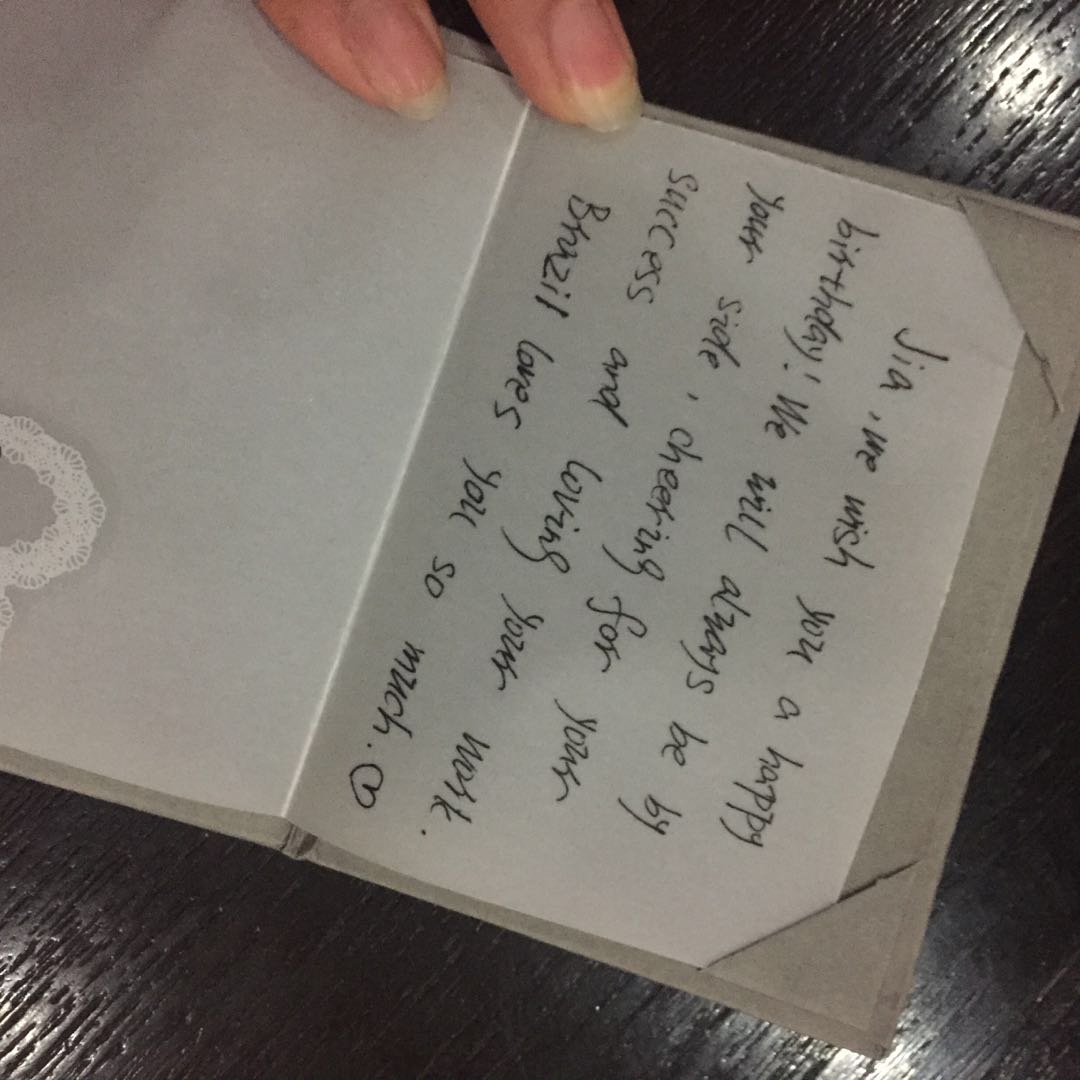 Jia, we wish you a happy
birthday! We will always be by
your side, cheering for your
success and loving your work.
Brazil loves you so much.